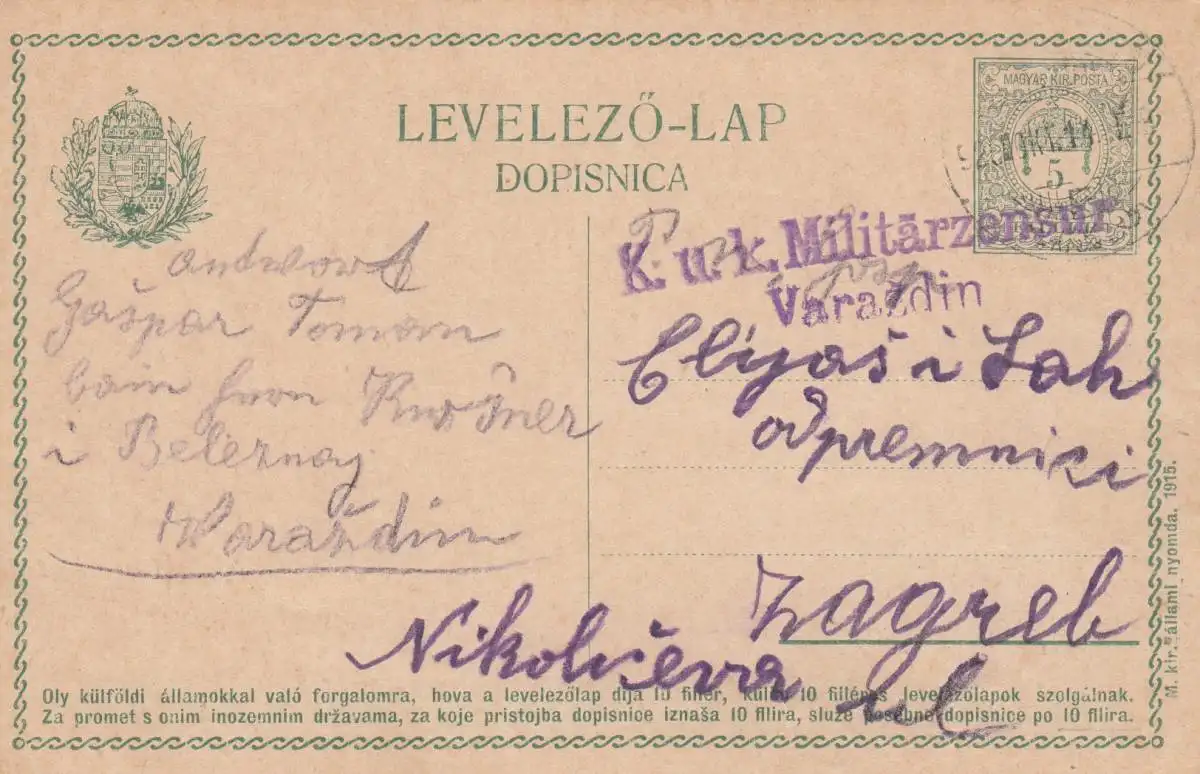 LEVELEZŐ-LAP
DOPISNICA
MAGYAR KIR. POSTA
5
K. u. k. Militärzensur
Varaždin
antwort
Gašpar Toman
bain
i Beleznay
Waraždin
P. n.
gosp.
Elijaš i Lah
odpremnici
Zagreb
Nikolićeva ul
Oly külföldi államokkal való forgalomra, hova a levelezőlap díja 10 fillér, külön 10 filléres levelezőlapok szolgálnak.
Za promet s onim inozemnim državama, za koje pristojba dopisnice iznaša 10 filira, služe posebne dopisnice po 10 filira.
M. kir. állami nyomda. 1915.